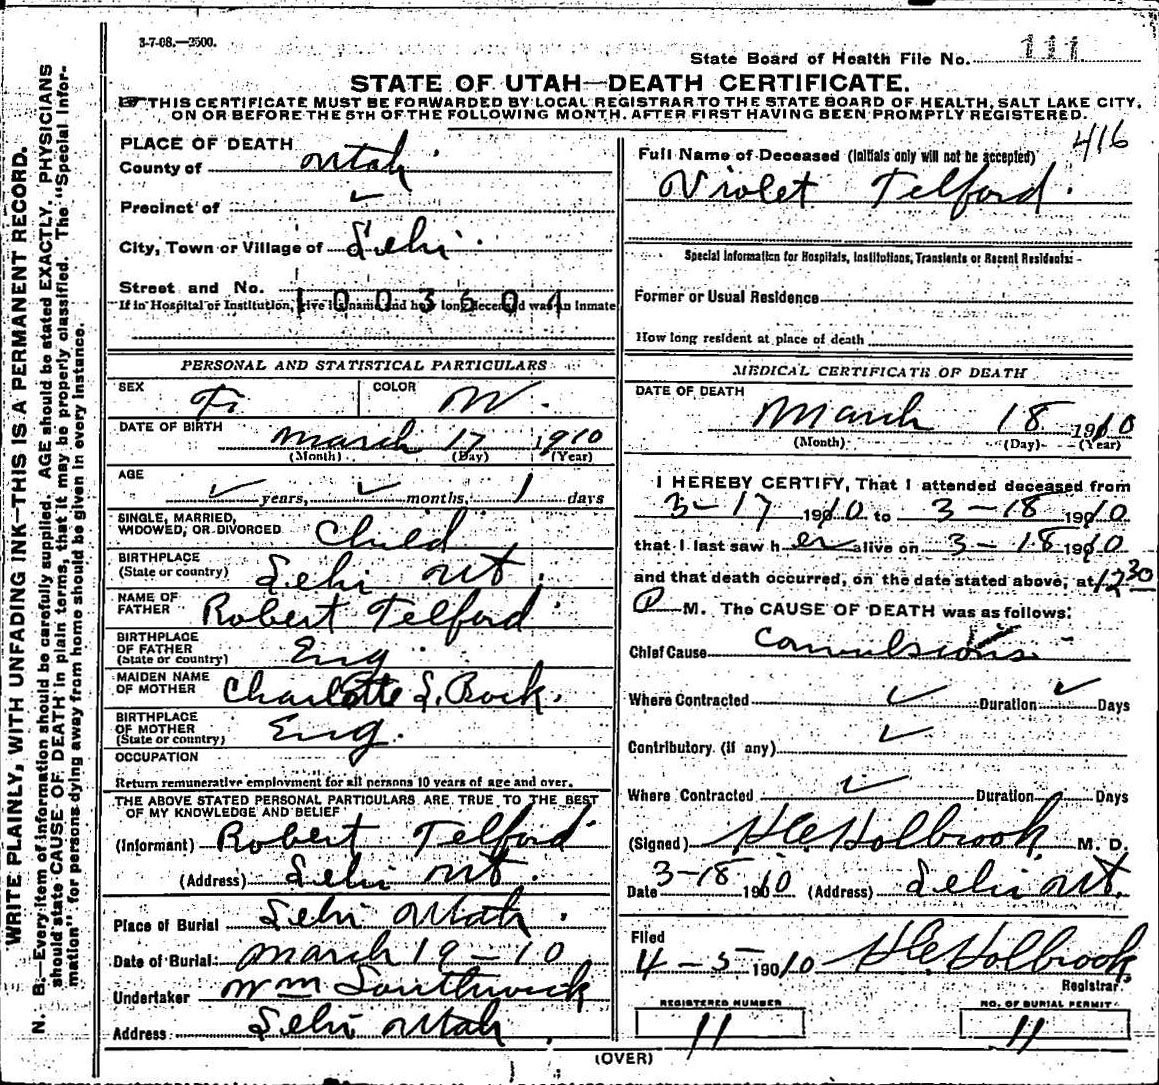 3-7-08.—2500.
State Board of Health File No. 111
STATE OF UTAH—DEATH CERTIFICATE.
THIS CERTIFICATE MUST BE FORWARDED BY LOCAL REGISTRAR TO THE STATE BOARD OF HEALTH, SALT LAKE CITY,
ON OR BEFORE THE 5TH OF THE FOLLOWING MONTH, AFTER FIRST HAVING BEEN PROMPTLY REGISTERED.
416
PLACE OF DEATH
County of Utah
Precinct of
City, Town or Village of Lehi
Street and No.
1003604
If in Hospital or Institution, give its name and how long deceased was an Inmate
PERSONAL AND STATISTICAL PARTICULARS
SEX F. COLOR W.
DATE OF BIRTH March 17 1910
(Month) (Day) (Year)
AGE years, months, 1 days
SINGLE, MARRIED,
WIDOWED, OR DIVORCED Child
BIRTHPLACE
(State or country) Lehi Ut.
NAME OF
FATHER Robert Telford
BIRTHPLACE
OF FATHER
(State or country) Eng.
MAIDEN NAME
OF MOTHER Charlotte S. Bock.
BIRTHPLACE
OF MOTHER
(State or country) Eng.
OCCUPATION
Return remunerative employment for all persons 10 years of age and over.
THE ABOVE STATED PERSONAL PARTICULARS ARE TRUE TO THE BEST
OF MY KNOWLEDGE AND BELIEF
(Informant) Robert Telford
(Address) Lehi Ut.
Place of Burial Lehi Utah.
Date of Burial: March 19 - 10
Undertaker Wm Southwick
Address Lehi Utah
Full Name of Deceased (Initials only will not be accepted)
Violet Telford.
Special Information for Hospitals, Institutions, Transients or Recent Residents:-
Former or Usual Residence
How long resident at place of death
MEDICAL CERTIFICATE OF DEATH
DATE OF DEATH
March 18 1910
(Month) (Day) (Year)
I HEREBY CERTIFY, That I attended deceased from
3-17 1910 to 3-18 1910
that I last saw her alive on 3-18 1910
and that death occurred, on the date stated above, at 12 30
P M. The CAUSE OF DEATH was as follows:
Chief Cause Convulsions
Where Contracted Duration Days
Contributory (if any)
Where Contracted Duration Days
(Signed) H C Holbrook M. D.
Date 3-18 1910 (Address) Lehi Ut.
Filed
4-5-1910 H C Holbrook
Registrar
REGISTERED NUMBER
11
NO. OF BURIAL PERMIT
11
(OVER)
WRITE PLAINLY, WITH UNFADING INK—THIS IS A PERMANENT RECORD.
N. B.—Every item of information should be carefully supplied. AGE should be stated EXACTLY. PHYSICIANS
should state CAUSE OF DEATH in plain terms, that it may be properly classified. The "Special Infor-
mation" for persons dying away from home should be given in every instance.